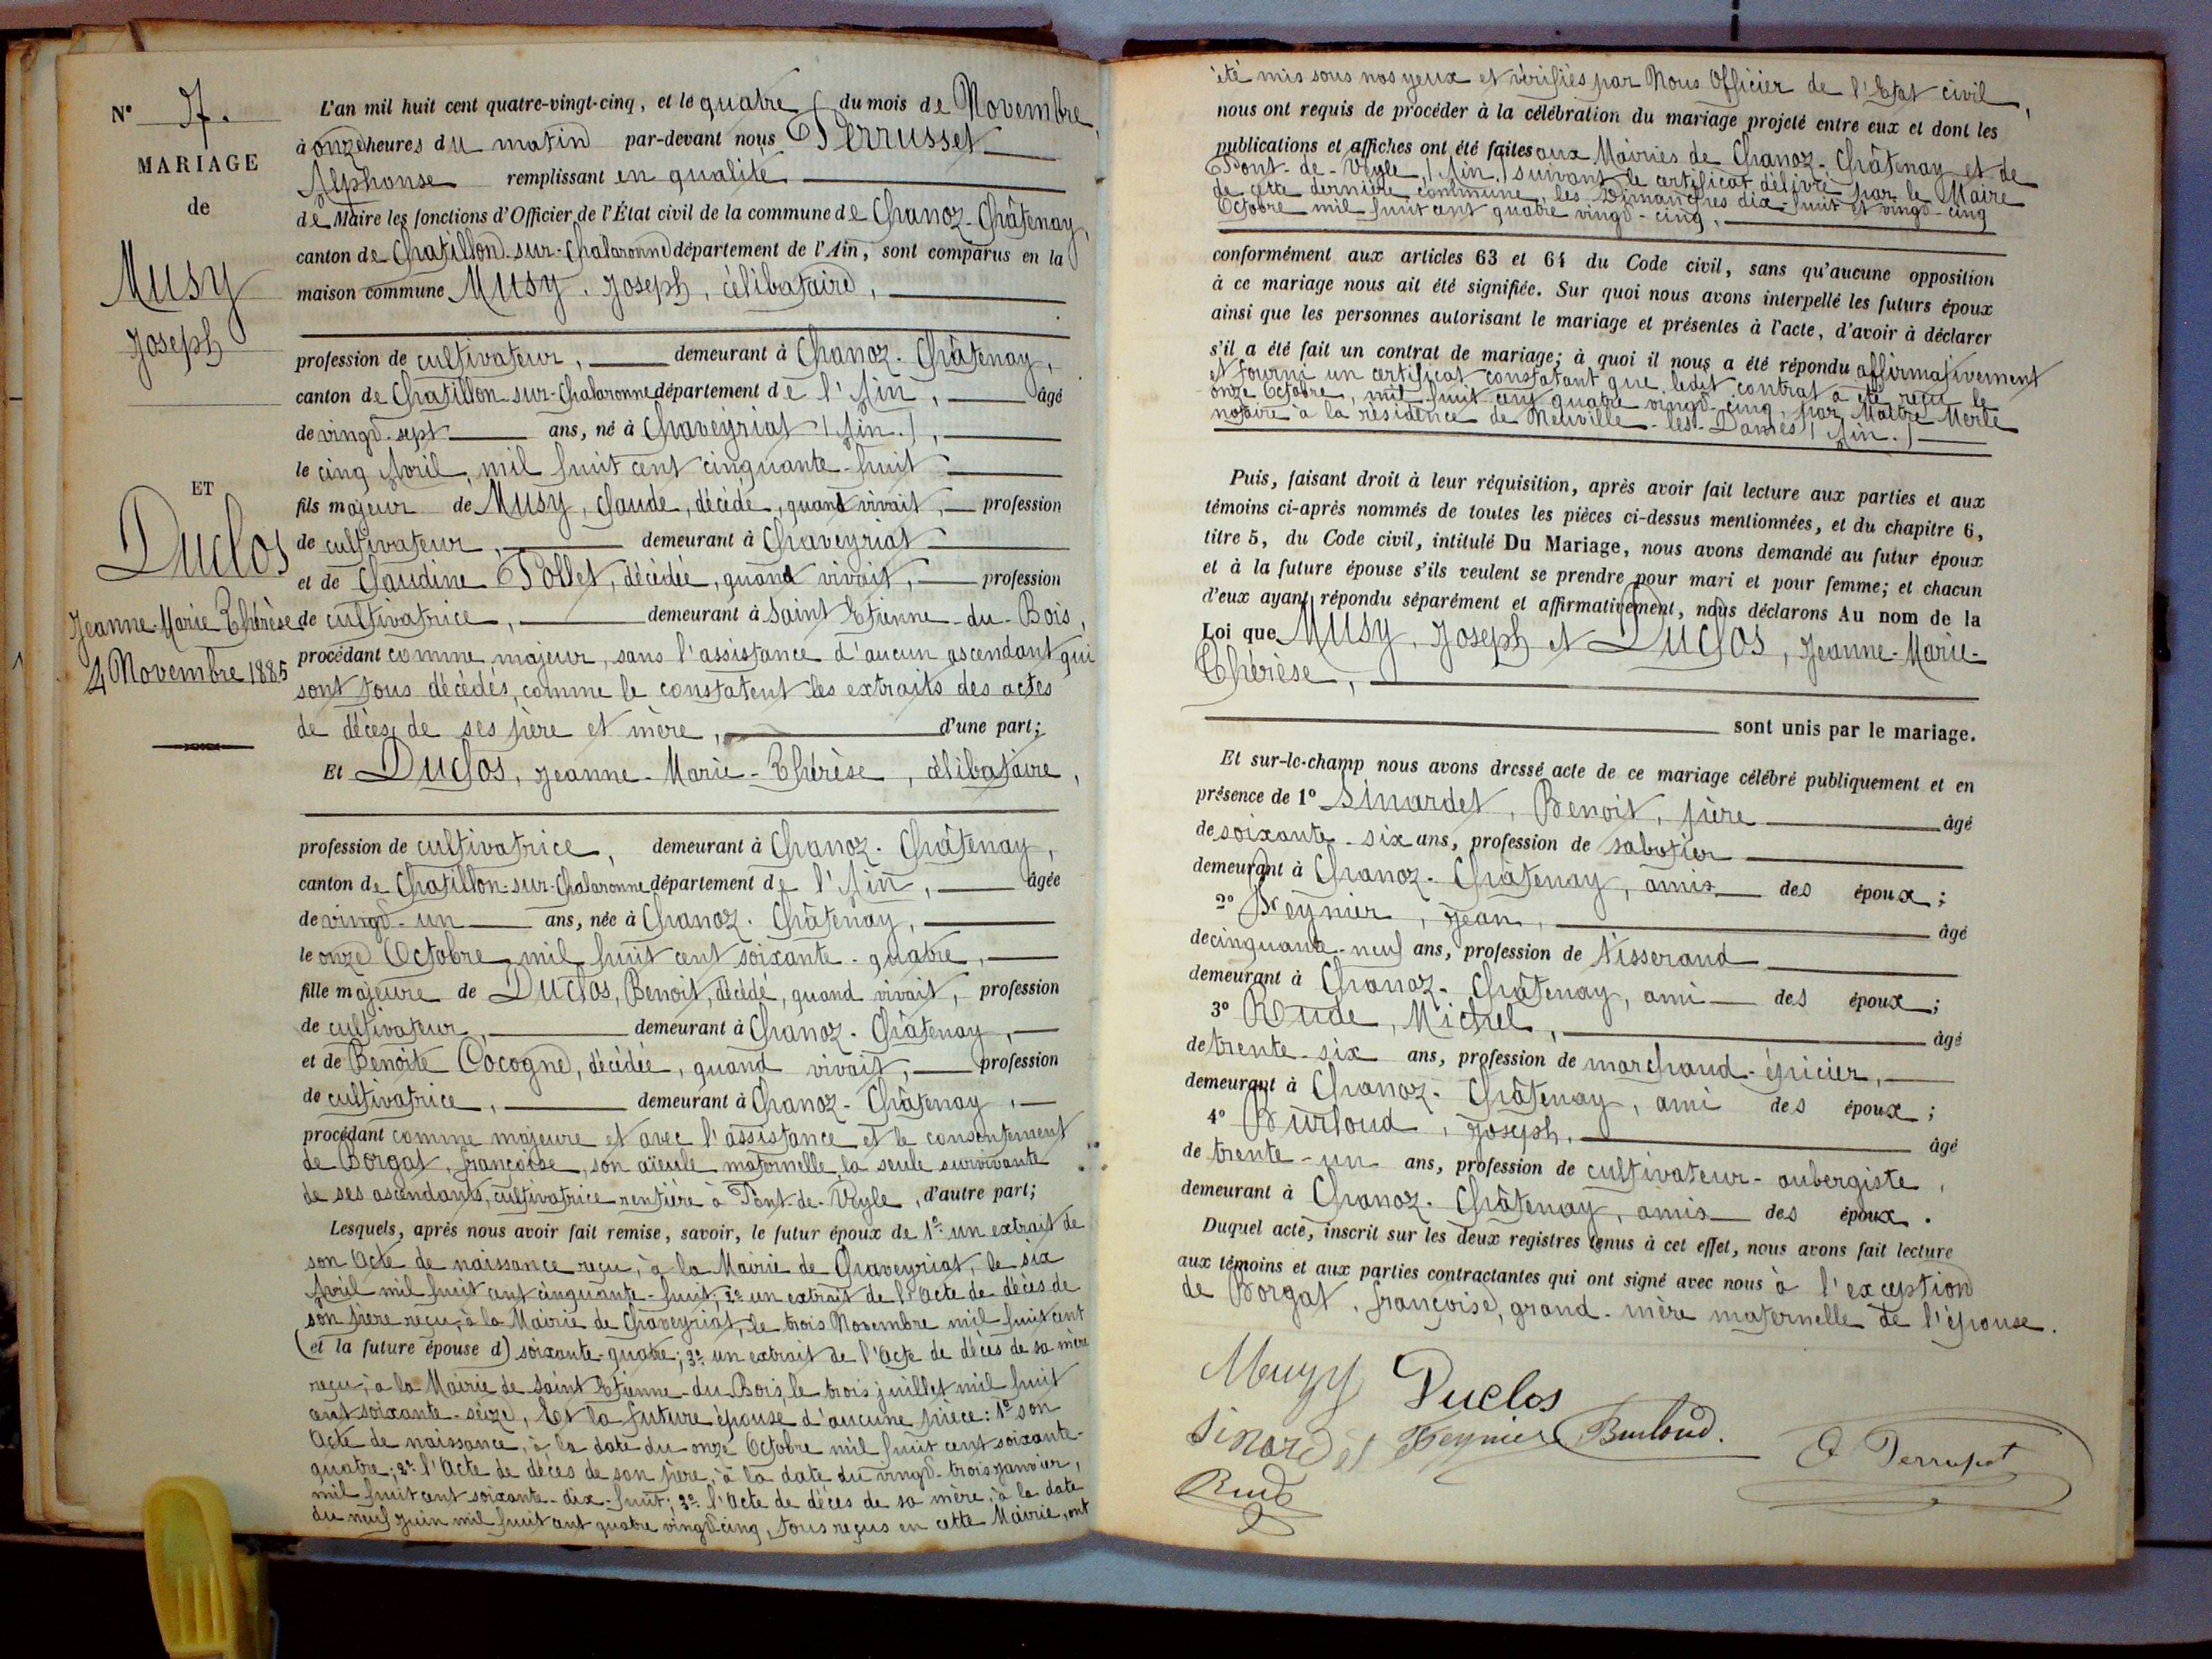 N° 7.
MARIAGE
de
Musy
Joseph
ET
Duclos
Jeanne-Marie Thérèse
4 Novembre 1885
L'an mil huit cent quatre-vingt-cinq, et le quatre du mois de Novembre,
à onze heures du matin par-devant nous Perrusset
Alphonse remplissant en qualité
de Maire les fonctions d'Officier de l'État civil de la commune de Chanoz-Châtenay,
canton de Chatillon-sur-Chalaronne département de l'Ain, sont comparus en la
maison commune Musy, Joseph, célibataire,
profession de cultivateur, demeurant à Chanoz-Châtenay,
canton de Chatillon-sur-Chalaronne département de l'Ain, âgé
de vingt-sept ans, né à Chaveyriat (Ain.),
le cinq Avril, mil huit cent cinquante-huit
fils majeur de Musy, Claude, décédé, quand vivait, profession
de cultivateur, demeurant à Chaveyriat
et de Claudine Pollet, décédée, quand vivait, profession
de cultivatrice, demeurant à Saint Etienne-du-Bois,
procédant comme majeur, sans l'assistance d'aucun ascendant qui
sont tous décédés, comme le constatent les extraits des actes
de décès de ses père et mère, d'une part;
Et Duclos, Jeanne-Marie-Thérèse, célibataire,
profession de cultivatrice, demeurant à Chanoz-Châtenay,
canton de Chatillon-sur-Chalaronne département de l'Ain, âgée
de vingt-un ans, née à Chanoz-Châtenay,
le onze Octobre mil huit cent soixante-quatre,
fille majeure de Duclos, Benoit, décédé, quand vivait, profession
de cultivateur, demeurant à Chanoz-Châtenay,
et de Benoîte Cocogne, décédée, quand vivait, profession
de cultivatrice, demeurant à Chanoz-Châtenay,
procédant comme majeure et avec l'assistance et le consentement
de Borgat, Françoise, son aïeule maternelle la seule survivante
de ses ascendants, cultivatrice rentière à Pont-de-Veyle, d'autre part;
Lesquels, après nous avoir fait remise, savoir, le futur époux de 1° un extrait de
son Acte de naissance reçu, à la Mairie de Chaveyriat, le six
Avril mil huit cent cinquante-huit; 2° un extrait de l'Acte de décès de
son père reçu, à la Mairie de Chaveyriat, le trois Novembre mil huit cent
(et la future épouse d) soixante-quatre; 3° un extrait de l'Acte de décès de sa mère
reçu, à la Mairie de Saint Etienne-du-Bois, le trois juillet mil huit
cent soixante-seize, Et la future épouse d'aucune pièce: 1° son
Acte de naissance, à la date du onze Octobre mil huit cent soixante-
quatre; 2° l'Acte de décès de son père, à la date du vingt-trois Janvier,
mil huit cent soixante-dix-huit; 3° l'Acte de décès de sa mère, à la date
du neuf Juin mil huit cent quatre vingt cinq, tous reçus en cette Mairie, ont
été mis sous nos yeux et vérifiés par Nous Officier de l'Etat civil,
nous ont requis de procéder à la célébration du mariage projeté entre eux et dont les
publications et affiches ont été faites aux Mairies de Chanoz-Châtenay et de
Pont-de-Veyle (Ain) suivant le certificat délivré par le Maire
de cette dernière commune, les Dimanches dix-huit et vingt-cinq
Octobre mil huit cent quatre vingt-cinq,
conformément aux articles 63 et 64 du Code civil, sans qu'aucune opposition
à ce mariage nous ait été signifiée. Sur quoi nous avons interpellé les futurs époux
ainsi que les personnes autorisant le mariage et présentes à l'acte, d'avoir à déclarer
s'il a été fait un contrat de mariage; à quoi il nous a été répondu affirmativement
et fourni un certificat constatant que ledit contrat a été reçu le
onze Octobre, mil huit cent quatre vingt-cinq, par Maître Merle
notaire à la résidence de Neuville-les-Dames (Ain.)
Puis, faisant droit à leur réquisition, après avoir fait lecture aux parties et aux
témoins ci-après nommés de toutes les pièces ci-dessus mentionnées, et du chapitre 6,
titre 5, du Code civil, intitulé Du Mariage, nous avons demandé au futur époux
et à la future épouse s'ils veulent se prendre pour mari et pour femme; et chacun
d'eux ayant répondu séparément et affirmativement, nous déclarons Au nom de la
Loi que Musy, Joseph et Duclos, Jeanne-Marie-
Thérèse,
sont unis par le mariage.
Et sur-le-champ nous avons dressé acte de ce mariage célébré publiquement et en
présence de 1° Sinardet, Benoit, père âgé
de soixante-six ans, profession de sabotier
demeurant à Chanoz-Châtenay, amis des époux;
2° Peynier, Jean, âgé
de cinquante-neuf ans, profession de Tisserand
demeurant à Chanoz-Châtenay, ami des époux;
3° Rude, Michel, âgé
de trente-six ans, profession de marchand-épicier,
demeurant à Chanoz-Châtenay, ami des époux;
4° Burloud, Joseph, âgé
de trente-un ans, profession de cultivateur-aubergiste,
demeurant à Chanoz-Châtenay, amis des époux.
Duquel acte, inscrit sur les deux registres tenus à cet effet, nous avons fait lecture
aux témoins et aux parties contractantes qui ont signé avec nous à l'exception
de Borgat, Françoise, grand-mère maternelle de l'épouse.
Musy Duclos
Sinardet Peynier Burloud. A Perrusset
Rude